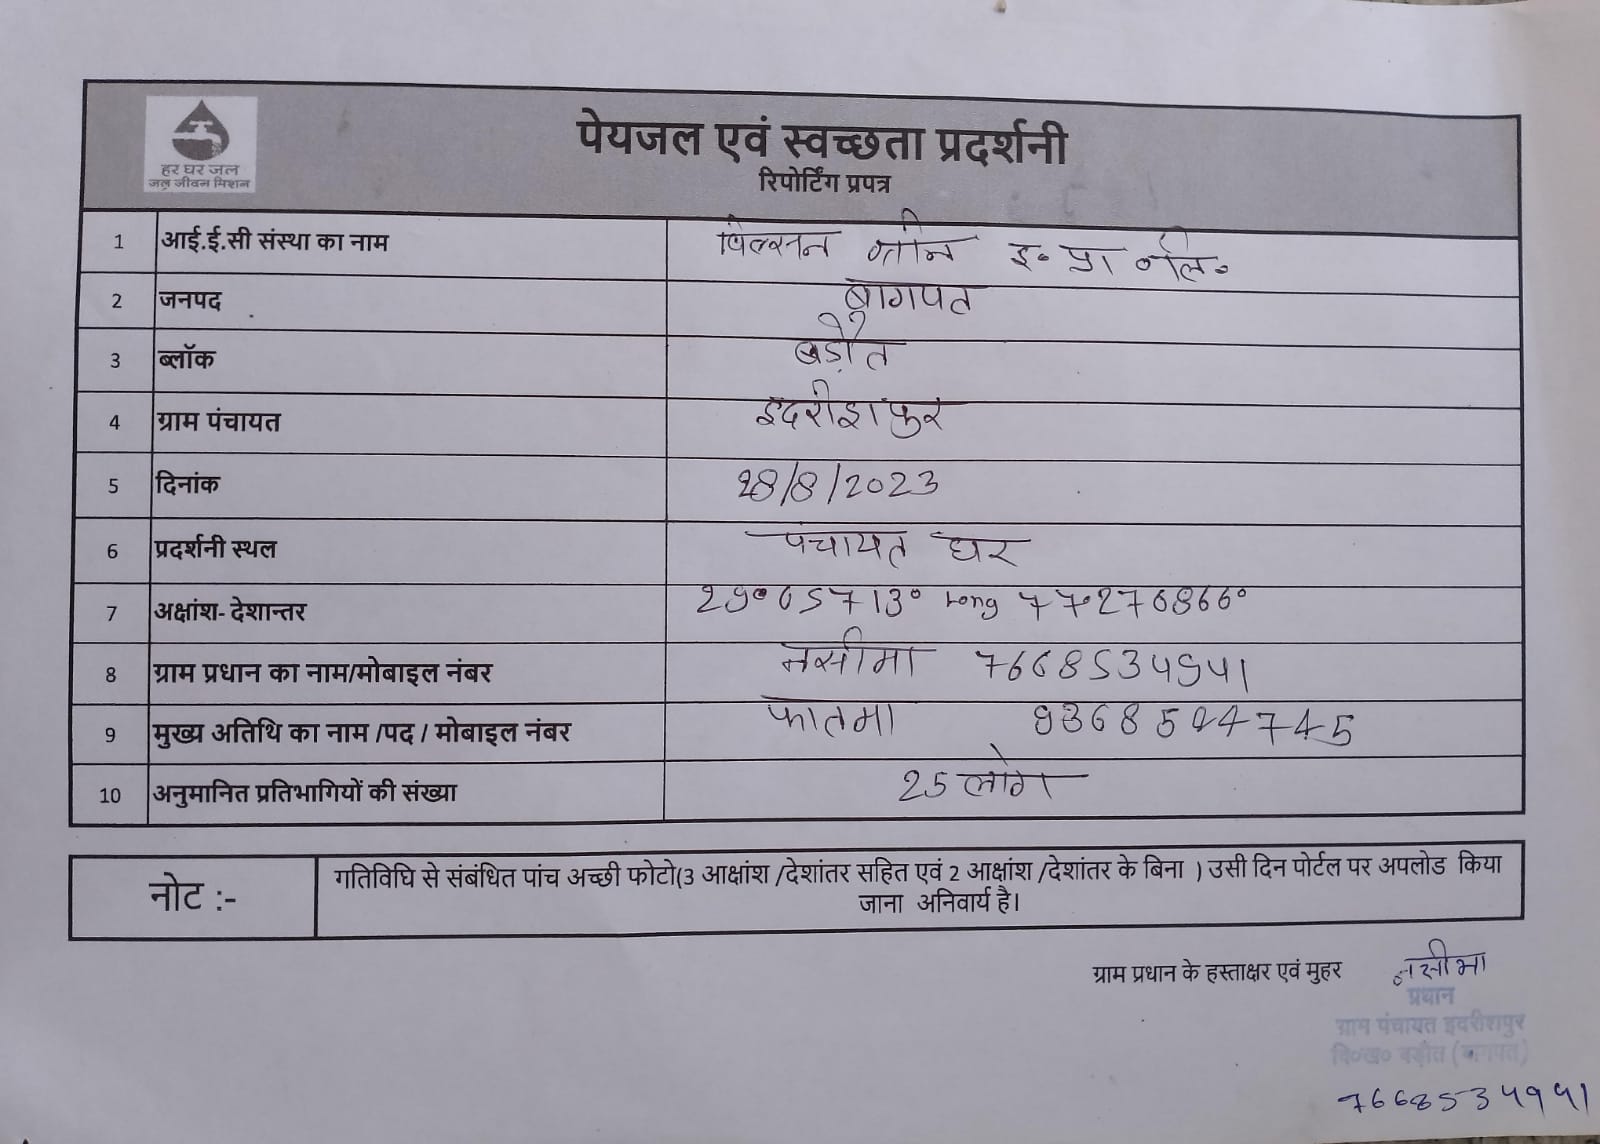 हर घर जल
जल जीवन मिशन
पेयजल एवं स्वच्छता प्रदर्शनी
रिपोर्टिंग प्रपत्र
1 आई.ई.सी संस्था का नाम विल्सन ग्रीन इ॰ प्रा॰ लि॰
2 जनपद बागपत
3 ब्लॉक बड़ौत
4 ग्राम पंचायत इदरीशपुर
5 दिनांक 28/8/2023
6 प्रदर्शनी स्थल पंचायत घर
7 अक्षांश- देशान्तर 29.05713° Long 77.276866°
8 ग्राम प्रधान का नाम/मोबाइल नंबर नसीमा 7668534941
9 मुख्य अतिथि का नाम /पद / मोबाइल नंबर फातमा
10 अनुमानित प्रतिभागियों की संख्या 25 लोग
नोट :- गतिविधि से संबंधित पांच अच्छी फोटो(3 आक्षांश /देशांतर सहित एवं 2 आक्षांश /देशांतर के बिना ) उसी दिन पोर्टल पर अपलोड किया
जाना अनिवार्य है।
ग्राम प्रधान के हस्ताक्षर एवं मुहर नसीमा
प्रधान
ग्राम पंचायत इदरीशपुर
वि०ख० बड़ौत (बागपत)
7668534941